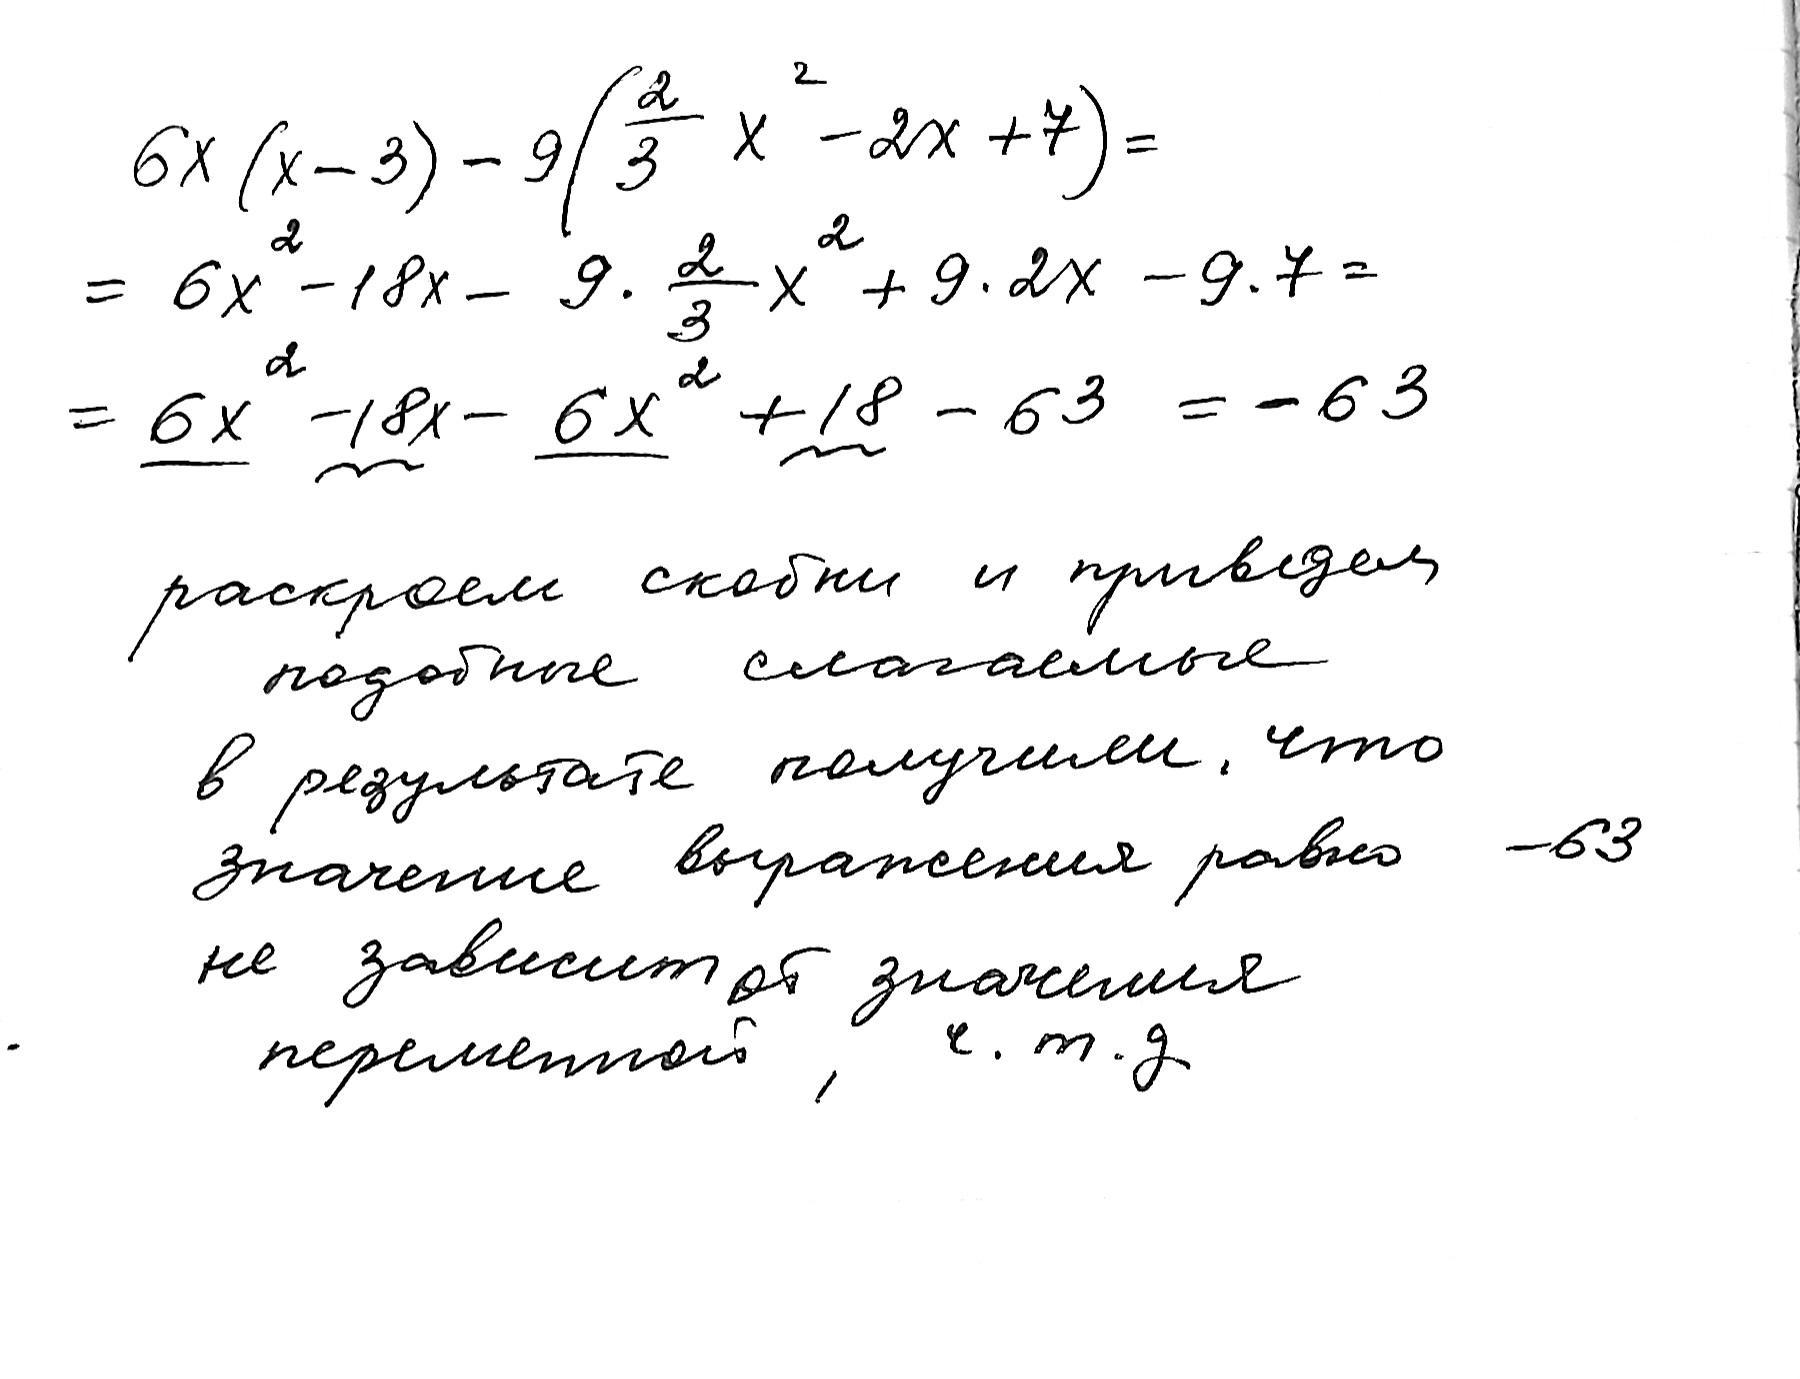 6x(x-3)-9(2/3 x² -2x+7)=
= 6x² -18x - 9·2/3 x² + 9·2x - 9·7=
= 6x² -18x - 6x² +18 - 63 = -63
раскроем скобки и приведем
подобные слагаемые
в результате получили, что
значение выражения равно -63
не зависит от значения
переменной, ч.т.д